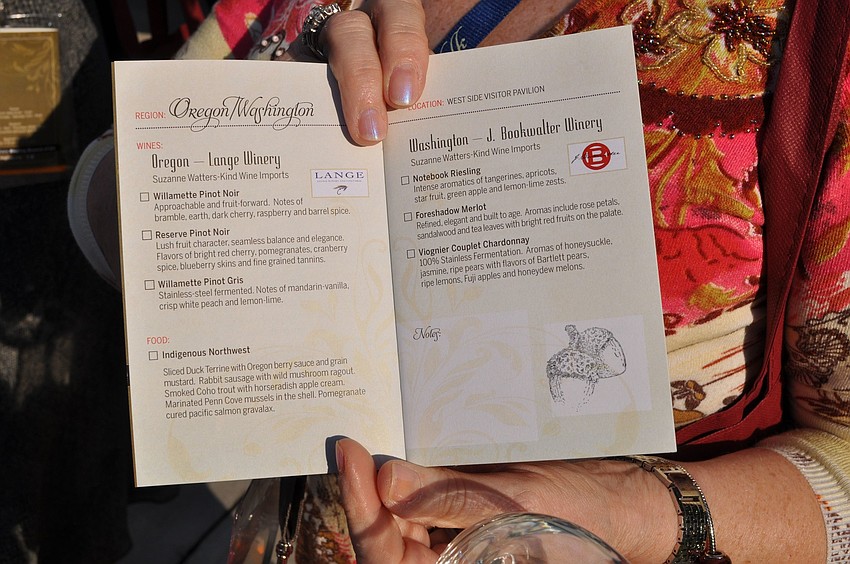 REGION: Oregon/Washington
WINES:
Oregon — Lange Winery
Suzanne Watters-Kind Wine Imports
LANGE
Willamette Pinot Noir
Approachable and fruit-forward. Notes of
bramble, earth, dark cherry, raspberry and barrel spice.
Reserve Pinot Noir
Lush fruit character, seamless balance and elegance.
Flavors of bright red cherry, pomegranates, cranberry
spice, blueberry skins and fine grained tannins.
Willamette Pinot Gris
Stainless-steel fermented. Notes of mandarin-vanilla,
crisp white peach and lemon-lime.
FOOD:
Indigenous Northwest
Sliced Duck Terrine with Oregon berry sauce and grain
mustard. Rabbit sausage with wild mushroom ragout.
Smoked Coho trout with horseradish apple cream.
Marinated Penn Cove mussels in the shell. Pomegranate
cured pacific salmon gravalax.
LOCATION: WEST SIDE VISITOR PAVILION
Washington — J. Bookwalter Winery
Suzanne Watters-Kind Wine Imports
B
Notebook Riesling
Intense aromatics of tangerines, apricots,
star fruit, green apple and lemon-lime zests.
Foreshadow Merlot
Refined, elegant and built to age. Aromas include rose petals,
sandalwood and tea leaves with bright red fruits on the palate.
Viognier Couplet Chardonnay
100% Stainless Fermentation. Aromas of honeysuckle,
jasmine, ripe pears with flavors of Bartlett pears,
ripe lemons, Fuji apples and honeydew melons.
Notes: